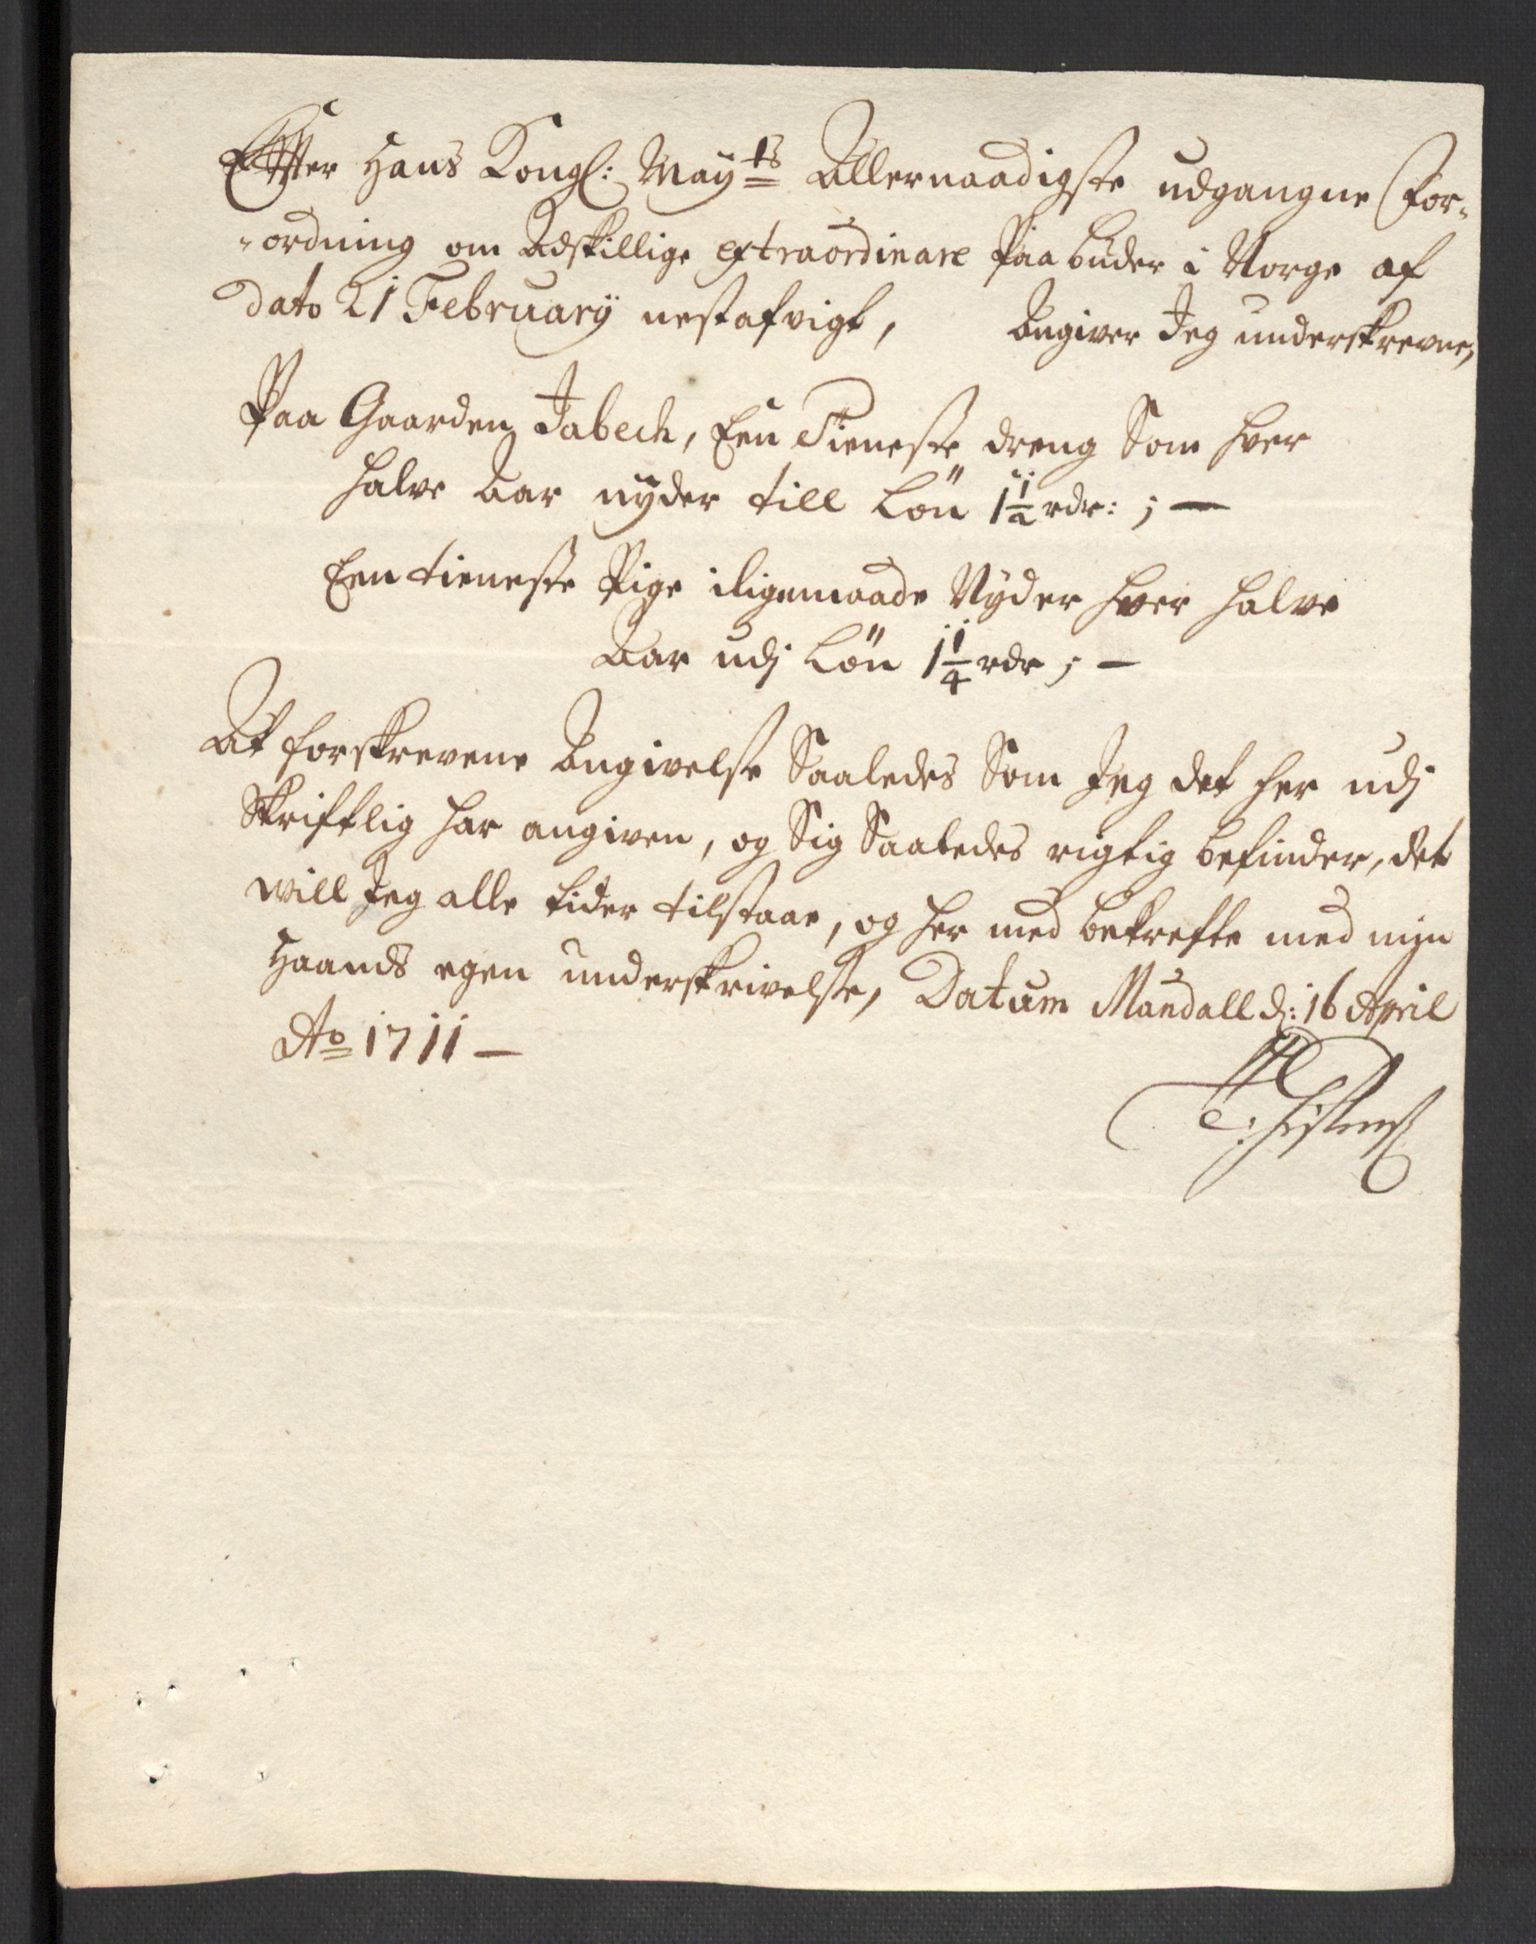 Efter Hans Kongl: May:ts Allernaadigste udgangne For-
-ordning om Adskillige extraordinare Paabuder i Norge af
dato 21 February nestafvigt, Angiver Jeg underskrevne,
Paa Gaarden Jabech, Een Tieneste dreng Som hver
halve Aar nyder till Løn 1 1/2 rdr: ; —
Een tieneste Pige iligemaade Nyder hver halve
Aar udj Løn 1 1/4 rdr ; —
At forskrevene Angivelse Saaledes Som Jeg det her udj
Skriftlig har angiven, og Sig Saaledes rigtig befinder, det
will Jeg alle tider tilstaae, og her med bekrefte med mijn
Haands egen underskrivelse, Datum Mandall d: 16 April
Ao 1711 —